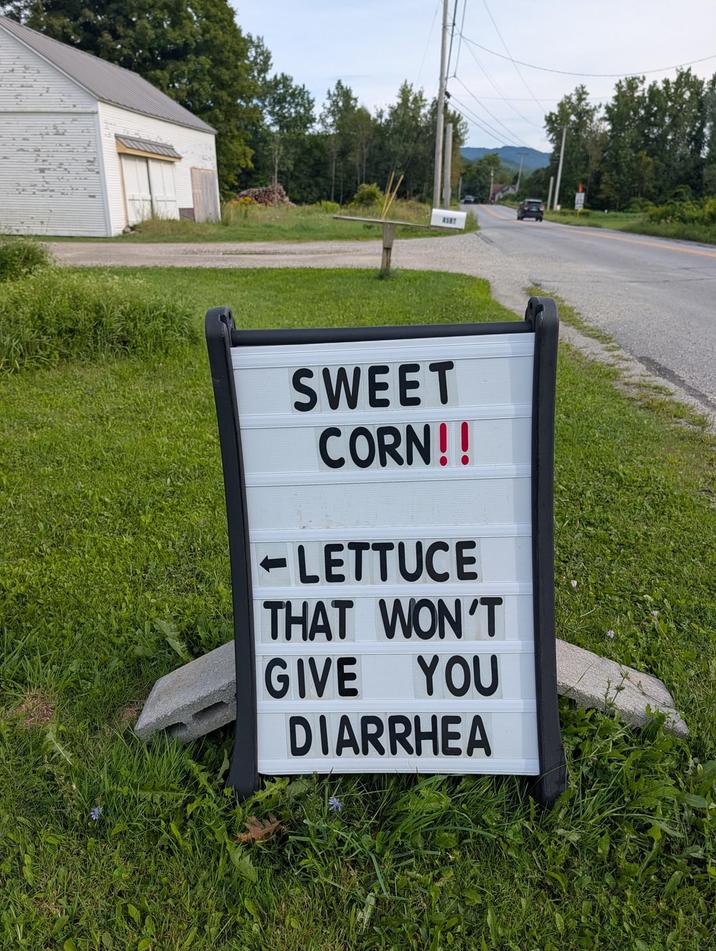 SWEET
CORN!!
←LETTUCE
THAT WON'T
GIVE YOU
DIARRHEA